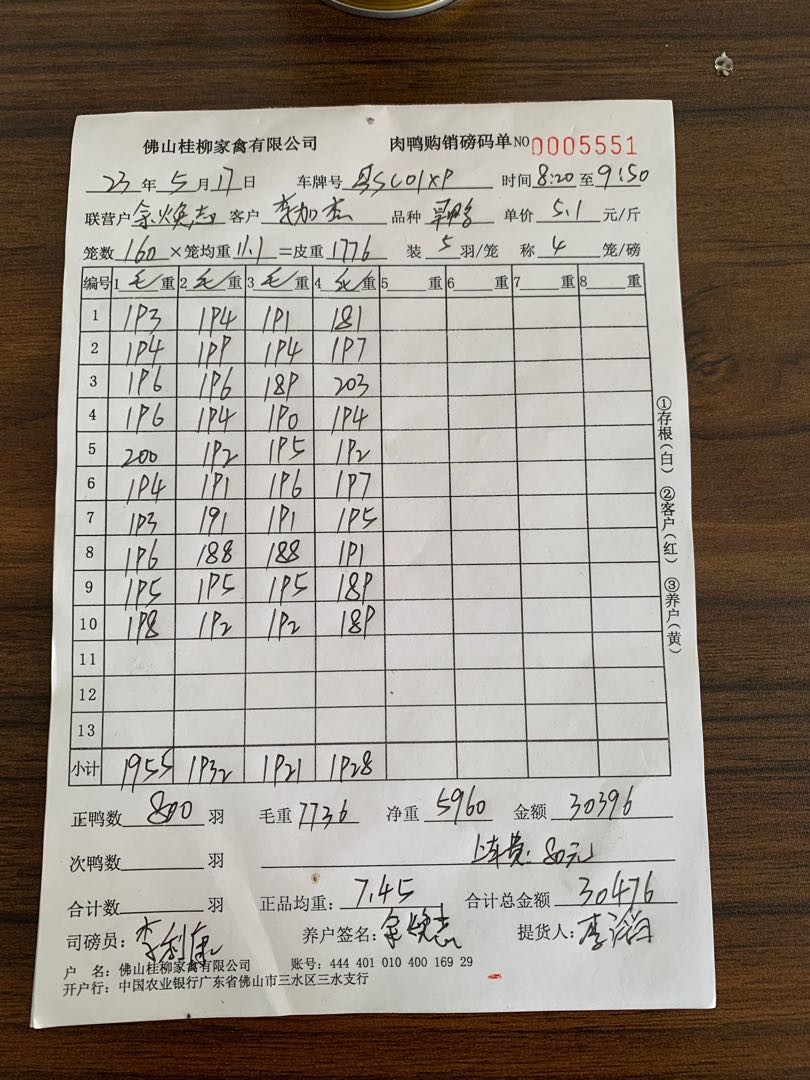 佛山桂柳家禽有限公司 肉鸭购销磅码单 NO 0005551
23 年 5 月 17 日 车牌号 时间 8:20 至 9:50
联营户 余焕志 客户 品种 单价 5.1 元/斤
笼数 160 ×笼均重 11.1 =皮重 1776 装 5 羽/笼 称 4 笼/磅
编号 1 毛 重 2 毛 重 3 毛 重 4 毛 重 5 重 6 重 7 重 8 重
1 193 194 191 181
2 194 199 194 197
3 196 196 189 203
4 196 194 190 194
5 200 192 195 192
6 194 191 196 197
7 193 191 191 195
8 196 188 188 191
9 195 195 195 189
10 198 192 192 189
11
12
13
小计 1955 1932 1921 1928
正鸭数 800 羽 毛重 7736 净重 5960 金额 30396
次鸭数 羽 上车费: 80元
合计数 羽 正品均重: 7.45 合计总金额 30476
司磅员: 李利康 养户签名: 余焕志 提货人:
户 名: 佛山桂柳家禽有限公司 账号: 444 401 010 400 169 29
开户行: 中国农业银行广东省佛山市三水区三水支行
①存根(白) ②客户(红) ③养户(黄)